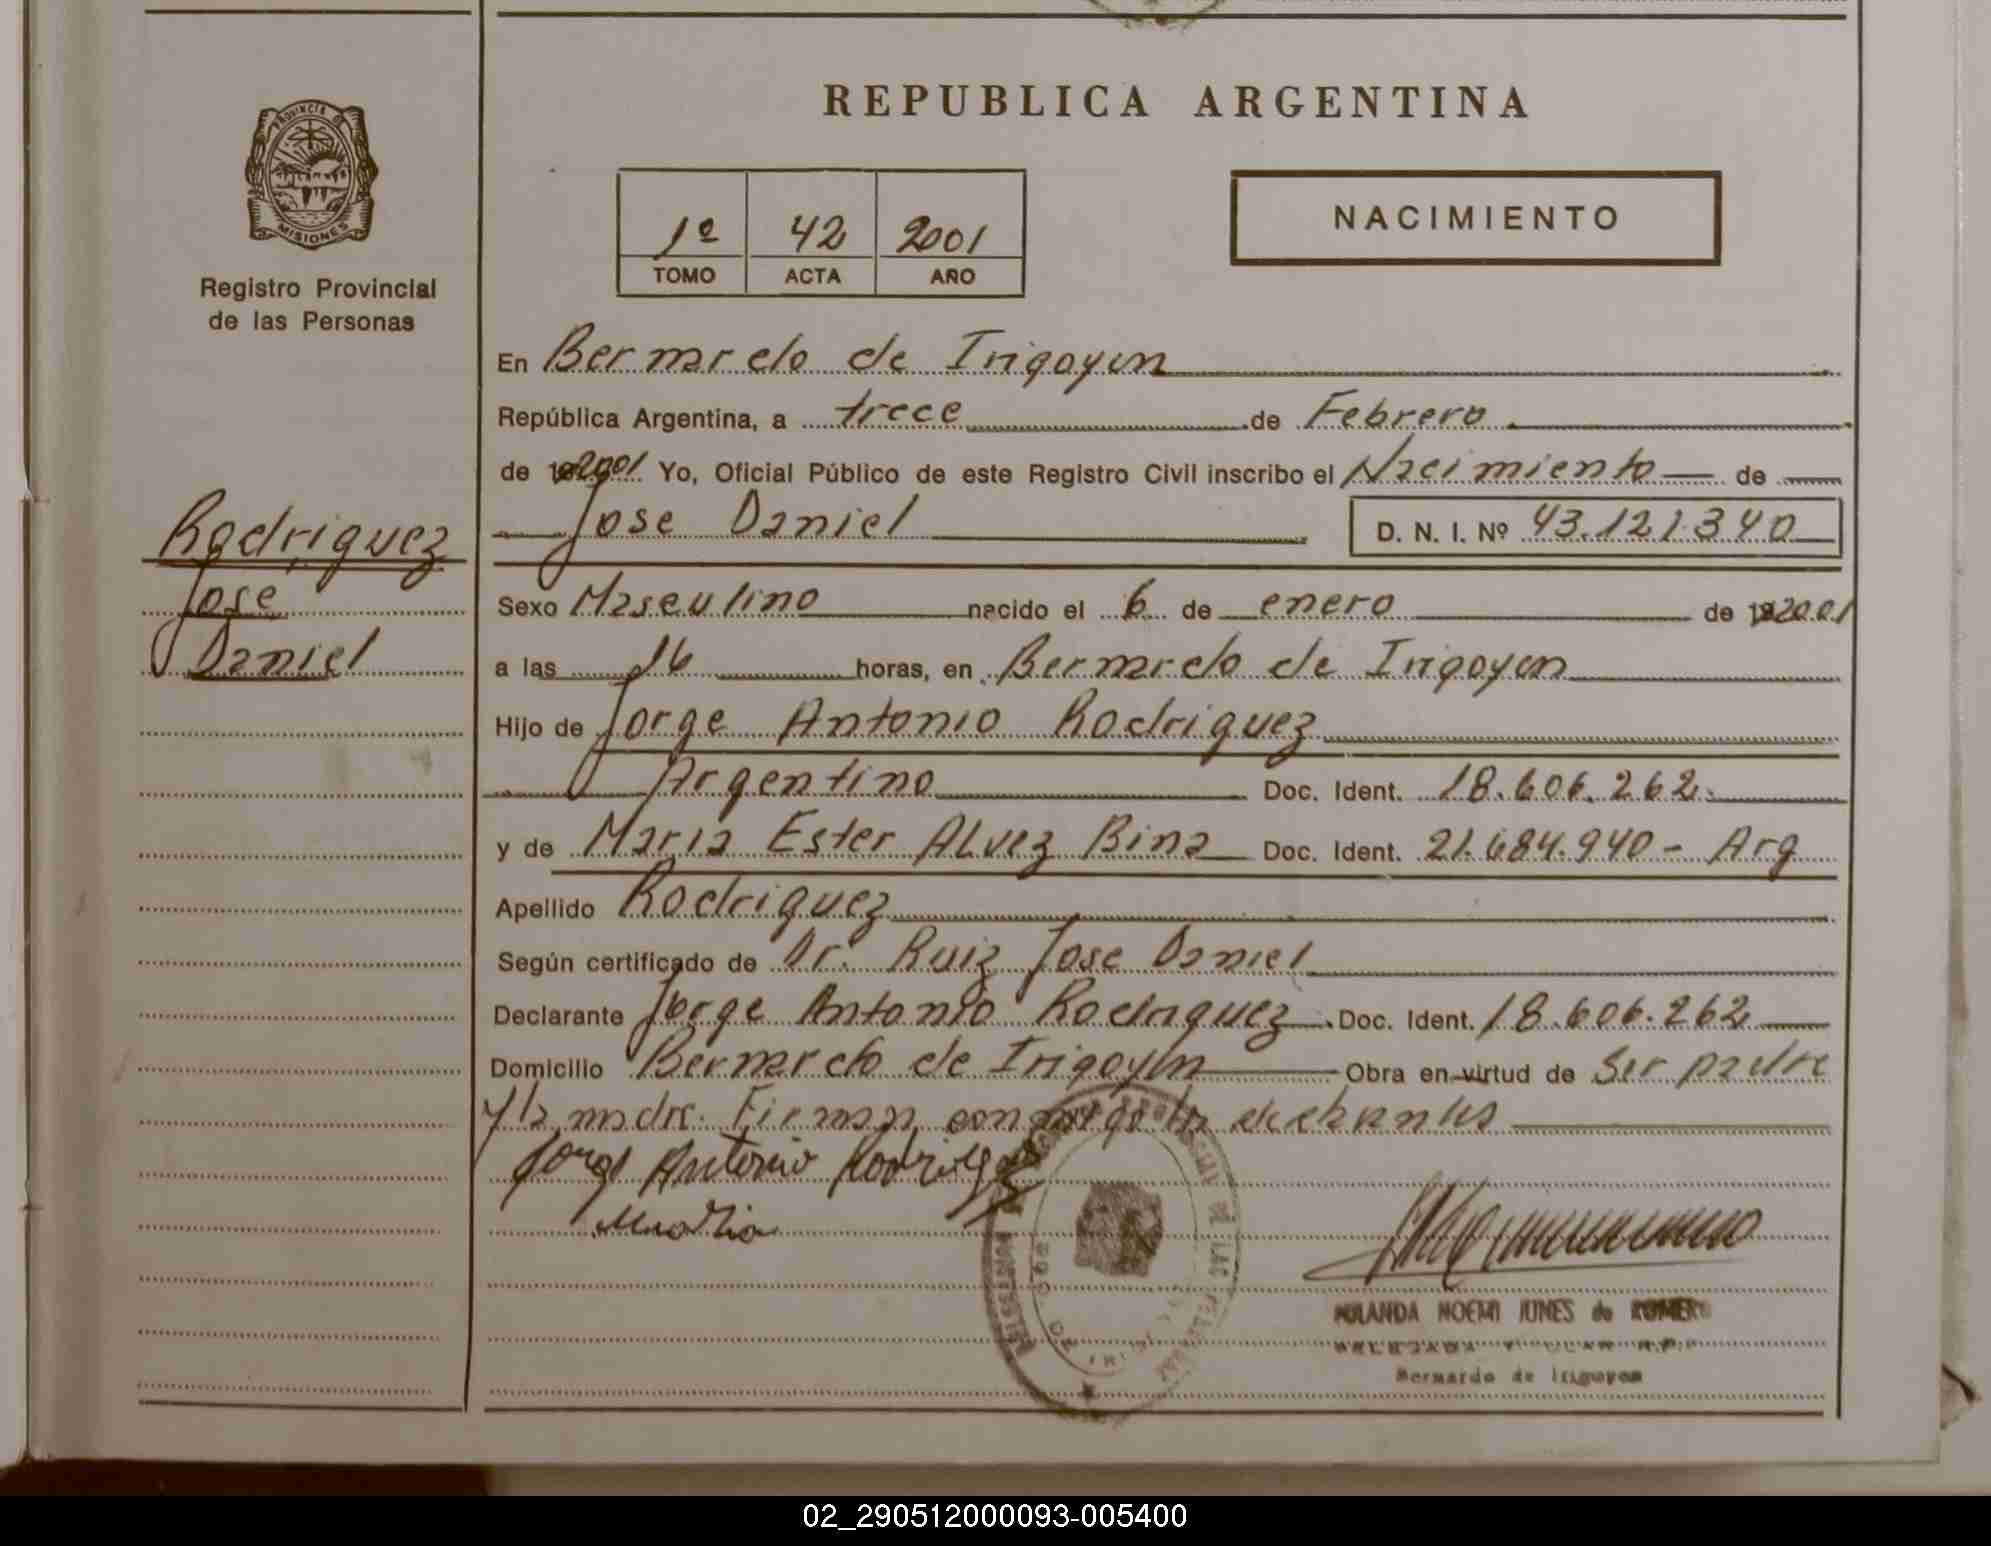 PROVINCIA DE
MISIONES
Registro Provincial
de las Personas
Rodriguez
Jose
Daniel
REPUBLICA ARGENTINA
1º 42 2001
TOMO ACTA AÑO
NACIMIENTO
En Bernardo de Irigoyen
República Argentina, a trece de Febrero
de 2001 Yo, Oficial Público de este Registro Civil inscribo el Nacimiento de
Jose Daniel D. N. I. Nº 43.121.340
Sexo Masculino nacido el 6 de enero de 2001
a las 16 horas, en Bernardo de Irigoyen
Hijo de Jorge Antonio Rodriguez
Argentino Doc. Ident. 18.606.262.
y de Maria Ester Alvez Bina Doc. Ident. 21.684.940 - Arg
Apellido Rodriguez
Según certificado de Dr. Ruiz Jose Daniel
Declarante Jorge Antonio Rodriguez Doc. Ident. 18.606.262
Domicilio Bernardo de Irigoyen Obra en virtud de Ser padre
y la madre. Firman conmigo declarantes
Jorge Antonio Rodriguez
Maria
NOEMI JUNES de ROMERO
Bernardo de Irigoyen
02_290512000093-005400